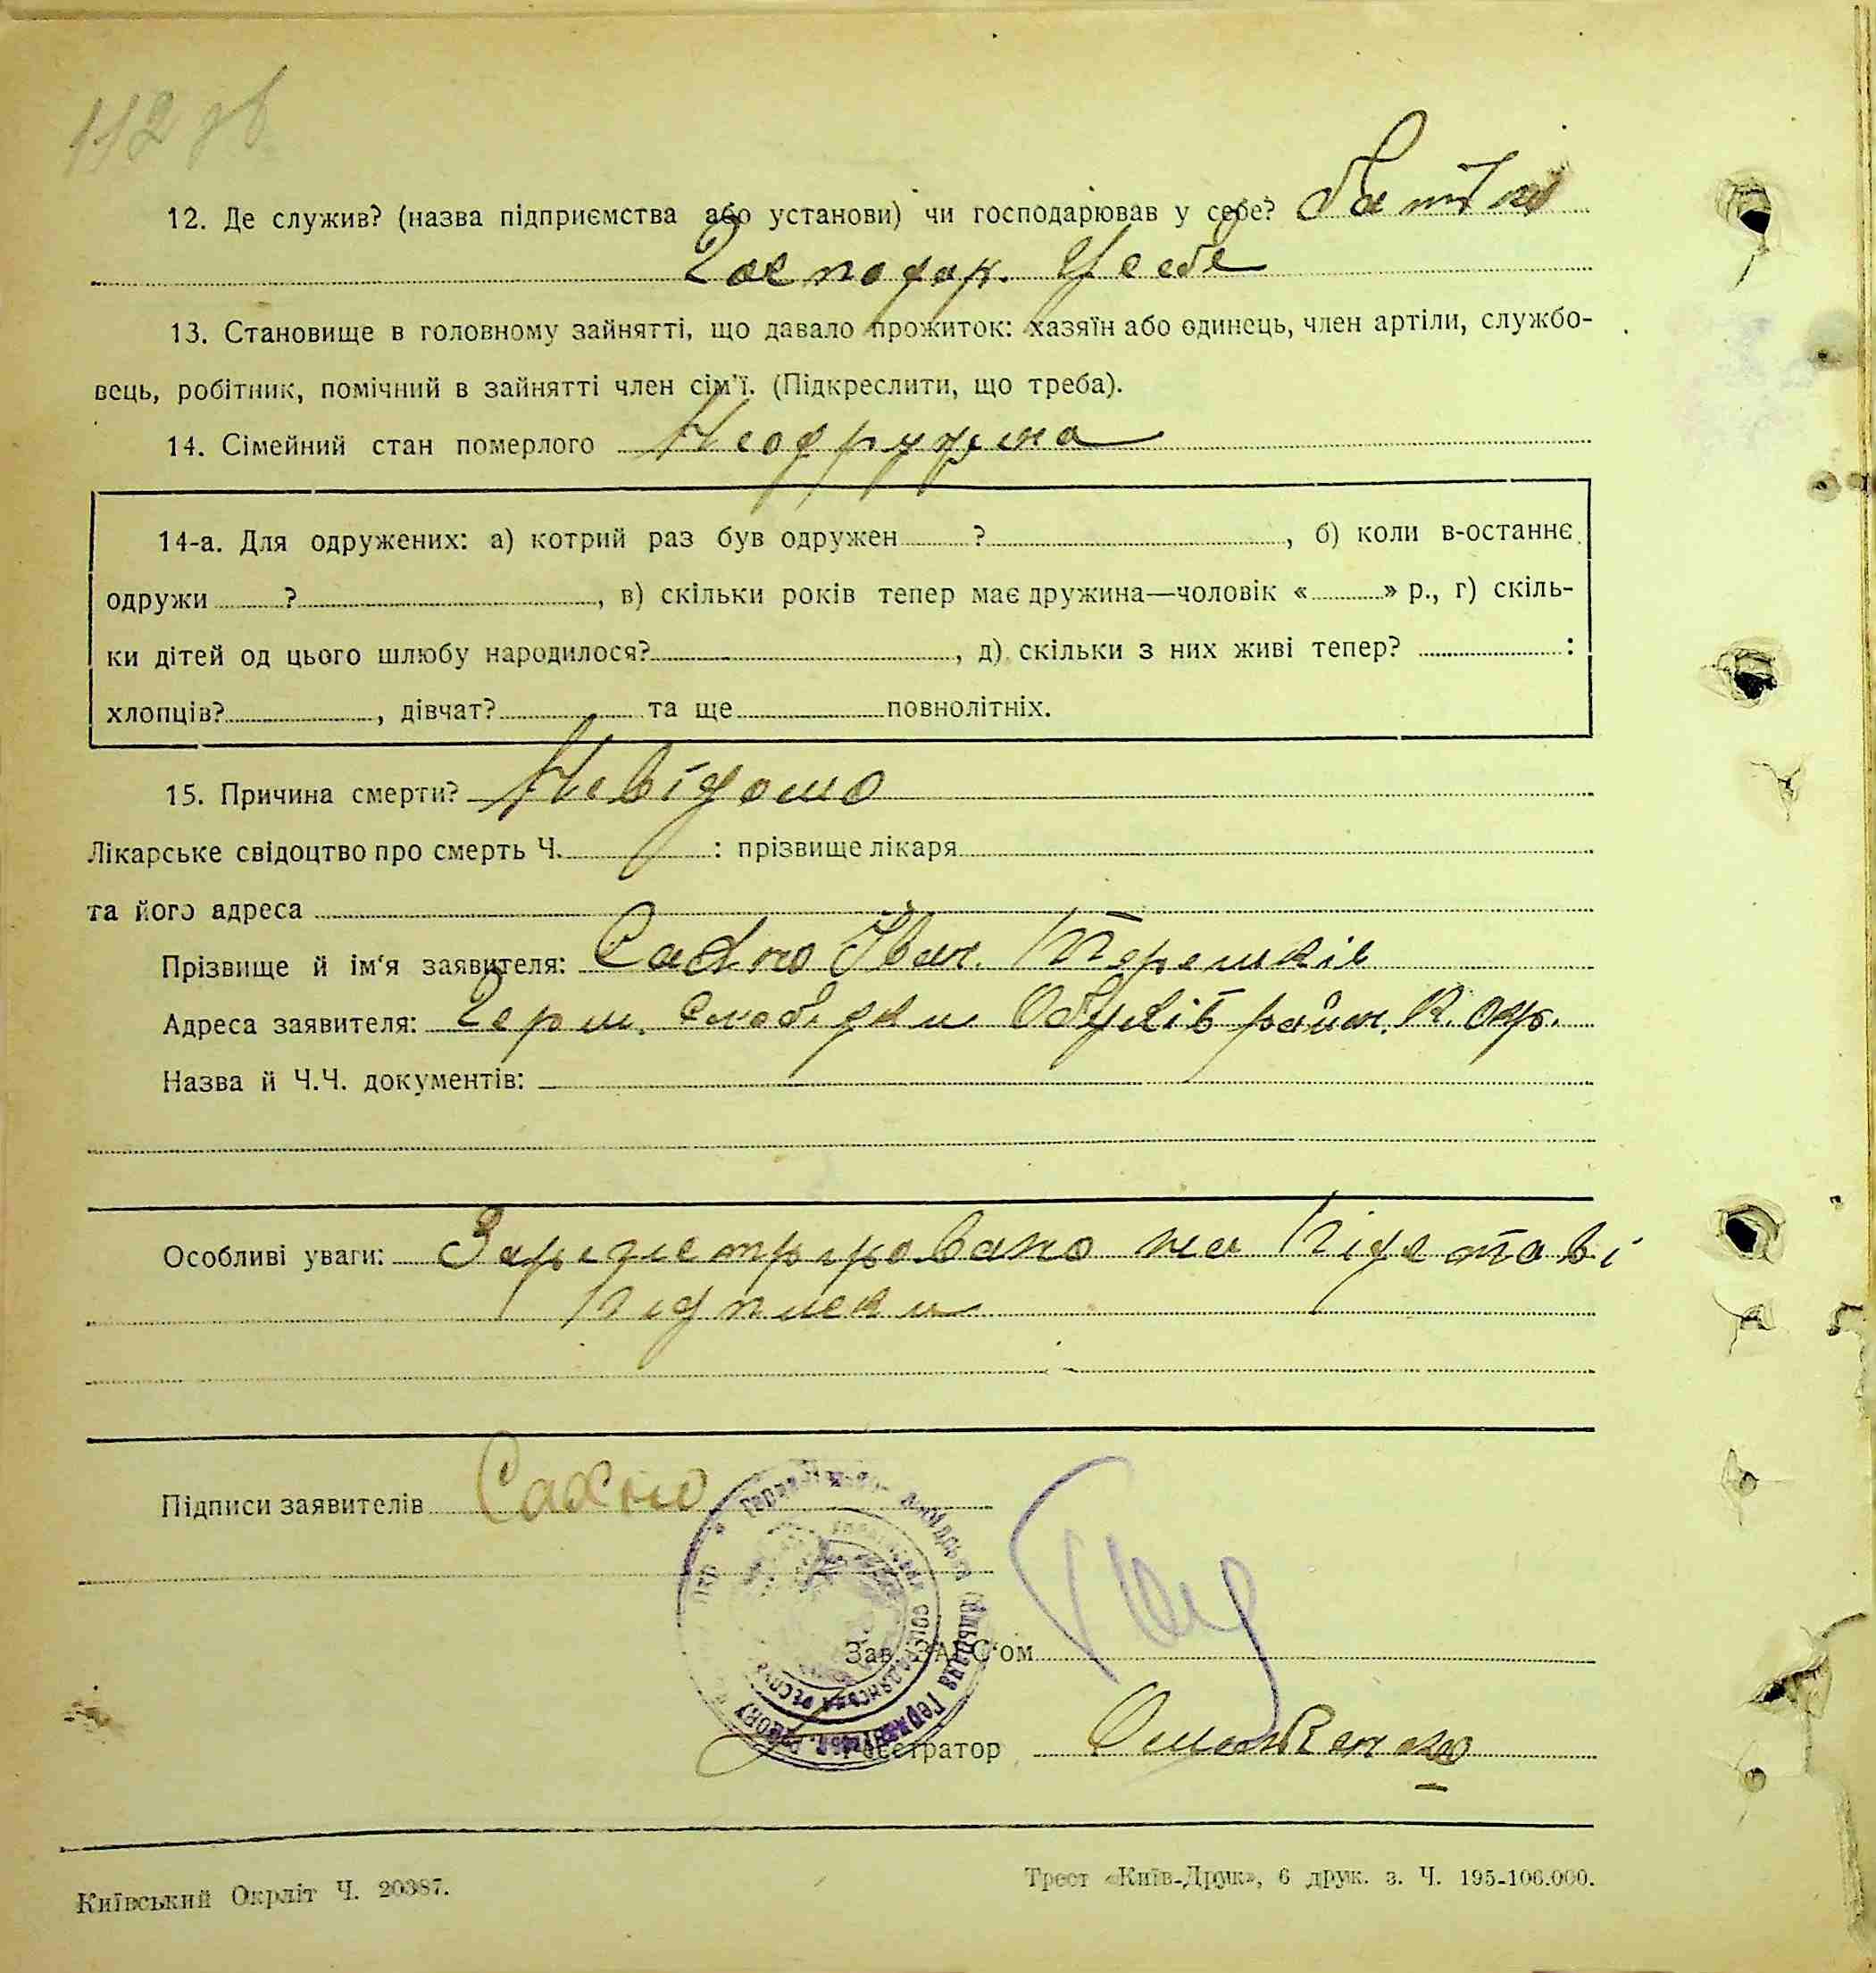 112 зв
12. Де служив? (назва підприємства або установи) чи господарював у себе? Батько
Господар. У себе
13. Становище в головному зайнятті, що давало прожиток: хазяїн або одинець, член артіли, службо-
вець, робітник, помічний в зайнятті член сім'ї. (Підкреслити, що треба).
14. Сімейний стан померлого Неодружена
14-а. Для одружених: а) котрий раз був одружен ? , б) коли в-останнє
одружи ? , в) скільки років тепер має дружина—чоловік « » р., г) скіль-
ки дітей од цього шлюбу народилося? , д) скільки з них живі тепер? :
хлопців? , дівчат? та ще повнолітніх.
15. Причина смерти? Невідомо
Лікарське свідоцтво про смерть Ч. : прізвище лікаря
та його адреса
Прізвище й ім'я заявителя: Сахно Іван. Терешків
Адреса заявителя: Герм. Слобідки Обухів район. К. Окр.
Назва й Ч.Ч. документів:
Особливі уваги: Зарегистрировано на Підставі
Підписки
Підписи заявителів Сахно
Зав. ЗАГС'ом
Реєстратор
Київський Окрліт Ч. 20387.
Трест «Київ-Друк», 6 друк. з. Ч. 195-106.000.